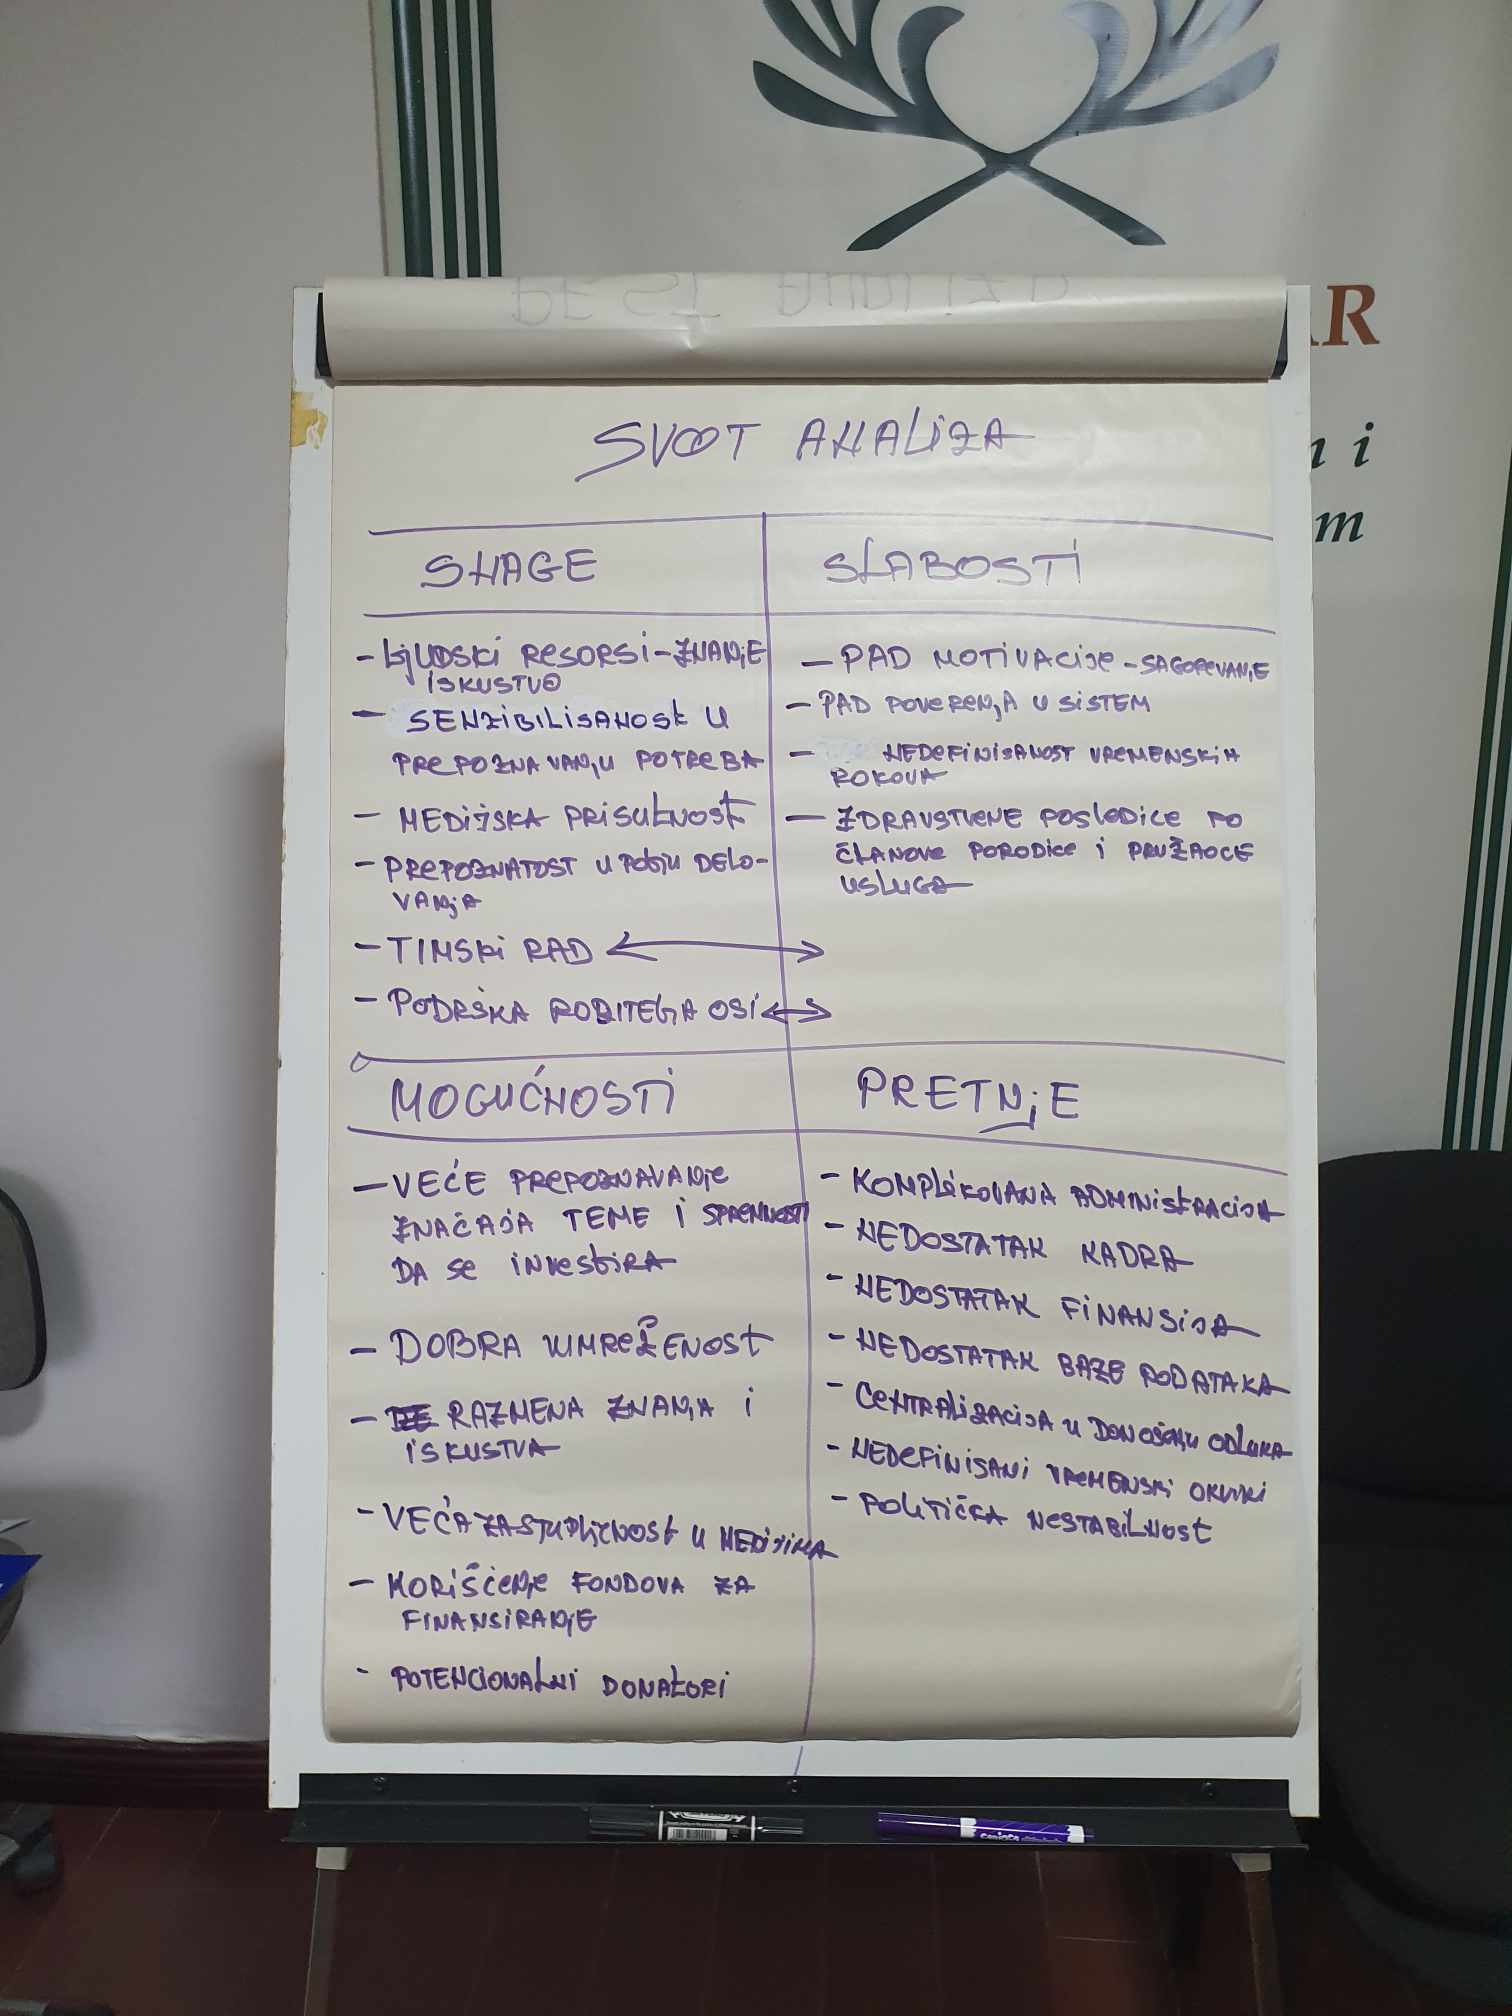 AR
n i
m
SVOT ANALIZA
SNAGE
- LJUDSKI RESORSI - ZNANJE
ISKUSTVO
- SENZIBILISANOST U
PREPOZNAVANJU POTREBA
- MEDIJSKA PRISUTNOST
- PREPOZNATOST U POLJU DELO-
VANJA
- TIMSKI RAD
- PODRŠKA RODITELJA OSI
SLABOSTI
- PAD MOTIVACIJE - SAGOREVANJE
- PAD POVERENJA U SISTEM
- NEDEFINISANOST VREMENSKIH
ROKOVA
- ZDRAVSTVENE POSLEDICE PO
ČLANOVE PORODICE I PRUŽAOCE
USLUGA
MOGUĆNOSTI
- VEĆE PREPOZNAVANJE
ZNAČAJA TEME I SPREMNOSTI
DA SE INVESTIRA
- DOBRA UMREŽENOST
- RAZMENA ZNANJA I
ISKUSTVA
- VEĆA ZASTUPLJENOST U MEDIJIMA
- KORIŠĆENJE FONDOVA ZA
FINANSIRANJE
- POTENCIONALNI DONATORI
PRETNJE
- KOMPLIKOVANA ADMINISTRACIJA
- NEDOSTATAK KADRA
- NEDOSTATAK FINANSIJA
- NEDOSTATAK BAZE PODATAKA
- CENTRALIZACIJA U DONOŠENJU ODLUKA
- NEDEFINISANI VREMENSKI OKVIRI
- POLITIČKA NESTABILNOST